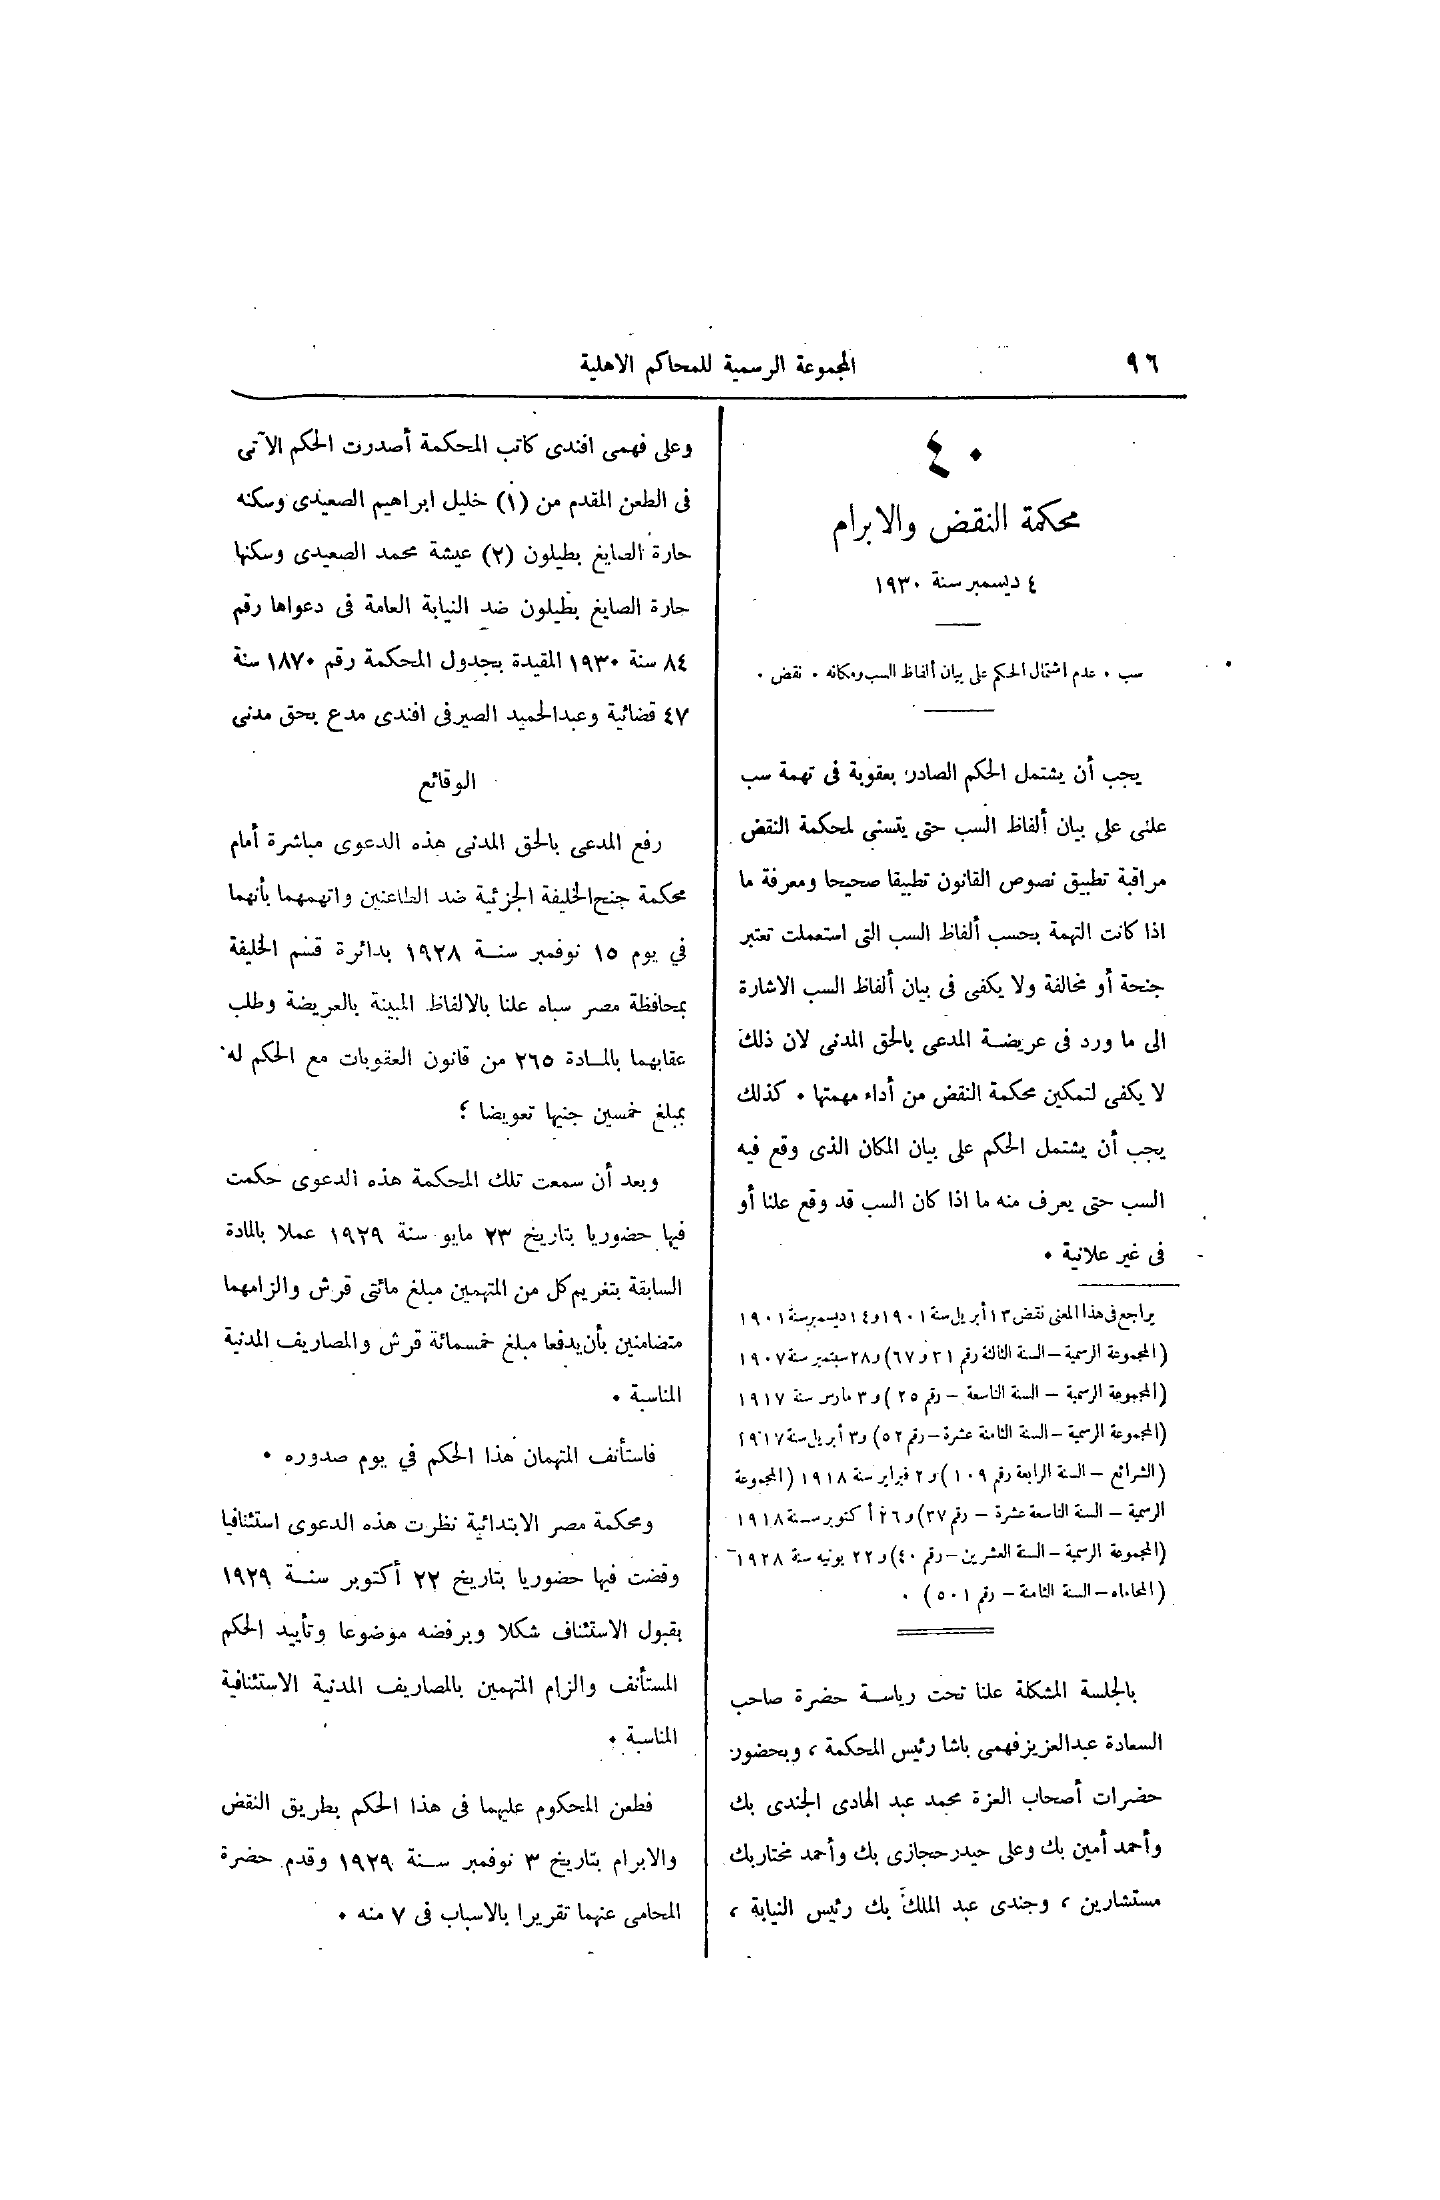 ٩٦
المجموعة الرسمية للمحاكم الاهلية
٤٠
محكمة النقض والابرام
٤ ديسمبر سنة ١٩٣٠
سب ٠ عدم اشتمال الحكم على بيان ألفاظ السب ومكانه ٠ نقض ٠
يجب أن يشتمل الحكم الصادر بعقوبة فى تهمة سب
علنى على بيان ألفاظ السب حتى يتسنى لمحكمة النقض
مراقبة تطبيق نصوص القانون تطبيقا صحيحا ومعرفة ما
اذا كانت التهمة بحسب ألفاظ السب التى استعملت تعتبر
جنحة أو مخالفة ولا يكفى فى بيان ألفاظ السب الاشارة
الى ما ورد فى عريضة المدعى بالحق المدنى لان ذلك
لا يكفى لتمكين محكمة النقض من أداء مهمتها ٠ كذلك
يجب أن يشتمل الحكم على بيان المكان الذى وقع فيه
السب حتى يعرف منه ما اذا كان السب قد وقع علنا أو
فى غير علانية ٠
يراجع فى هذا المعنى نقض ١٣ أبريل سنة ١٩٠١ و١٤ ديسمبر سنة ١٩٠١
(المجموعة الرسمية – السنة الثالثة رقم ٣١ و ٦٧) و٢٨ سبتمبر سنة ١٩٠٧
(المجموعة الرسمية – السنة التاسعة – رقم ٢٥) و٣ مارس سنة ١٩١٧
(المجموعة الرسمية – السنة الثامنة عشرة – رقم ٥٢) و٣ أبريل سنة ١٩١٧
(الشرائع – السنة الرابعة رقم ١٠٩) و٢ فبراير سنة ١٩١٨ (المجموعة
الرسمية – السنة التاسعة عشرة – رقم ٣٧) و٢٦ أكتوبر سنة ١٩١٨
(المجموعة الرسمية – السنة العشرين – رقم ٤٠) و٢٢ يونيه سنة ١٩٢٨
(المحاماه – السنة الثامنة – رقم ٥٠١) ٠
بالجلسة المشكلة علنا تحت رياسة حضرة صاحب
السعادة عبدالعزيز فهمى باشا رئيس المحكمة ، وبحضور
حضرات أصحاب العزة محمد عبد الهادى الجندى بك
وأحمد أمين بك وعلى حيدر حجازى بك وأحمد مختار بك
مستشارين ، وجندى عبد الملك بك رئيس النيابة ،
وعلى فهمى افندى كاتب المحكمة أصدرت الحكم الآتى
فى الطعن المقدم من (١) خليل ابراهيم الصعيدى وسكنه
حارة الصايغ بطيلون (٢) عيشة محمد الصعيدى وسكنها
حارة الصايغ بطيلون ضد النيابة العامة فى دعواها رقم
٨٤ سنة ١٩٣٠ المقيدة بجدول المحكمة رقم ١٨٧٠ سنة
٤٧ قضائية وعبدالحميد الصيرفى افندى مدع بحق مدنى
الوقائع
رفع المدعى بالحق المدنى هذه الدعوى مباشرة أمام
محكمة جنح الخليفة الجزئية ضد الطاعنين واتهمهما بأنهما
في يوم ١٥ نوفمبر سنة ١٩٢٨ بدائرة قسم الخليفة
بمحافظة مصر سباه علنا بالالفاظ المبينة بالعريضة وطلب
عقابهما بالمادة ٢٦٥ من قانون العقوبات مع الحكم له
بمبلغ خمسين جنيها تعويضا ؛
وبعد أن سمعت تلك المحكمة هذه الدعوى حكمت
فيها حضوريا بتاريخ ٢٣ مايو سنة ١٩٢٩ عملا بالمادة
السابقة بتغريم كل من المتهمين مبلغ مائتى قرش والزامهما
متضامنين بأن يدفعا مبلغ خمسمائة قرش والمصاريف المدنية
المناسبة ٠
فاستأنف المتهمان هذا الحكم في يوم صدوره ٠
ومحكمة مصر الابتدائية نظرت هذه الدعوى استئنافيا
وقضت فيها حضوريا بتاريخ ٢٢ أكتوبر سنة ١٩٢٩
بقبول الاستئناف شكلا وبرفضه موضوعا وتأييد الحكم
المستأنف والزام المتهمين بالمصاريف المدنية الاستئنافية
المناسبة ٠
فطعن المحكوم عليهما فى هذا الحكم بطريق النقض
والابرام بتاريخ ٣ نوفمبر سنة ١٩٢٩ وقدم حضرة
المحامى عنهما تقريرا بالاسباب فى ٧ منه ٠